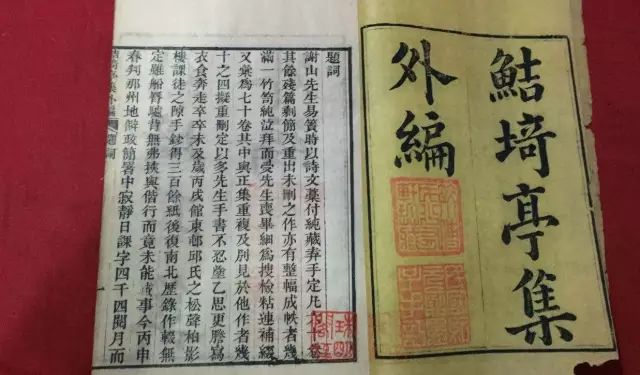 鮚埼亭集
外編
題詞
謝山先生易簀時以詩文藳付純藏弆手定凡六十卷
其餘殘篇剩簡及重出未刪之作亦有整幅成帙者幾
滿一竹笥純泣拜而受先生喪畢細爲搜檢粘連補綴
又彙爲七十卷其中與正集重複及別見於他作者幾
十之四擬重刪定以多先生手書不忍塗乙思更謄寫
衣食奔走卒卒未及歲丙戌館東鄕邱氏之松聲柏影
樓課徒之隙手鈔得三百餘紙後復南北歷錄作輟無
定雖船脣驢背無弗挾與偕行而竟未能蕆事今丙申
春判那州地僻政簡署中寂靜日課字四千四閱月而